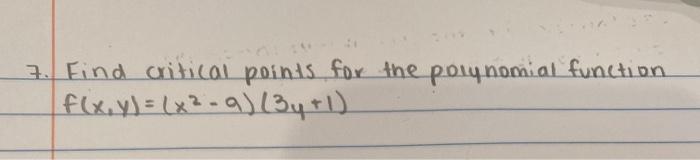 7. Find critical points for the polynomial function
f(x,y)=(x²-9)(3y+1)